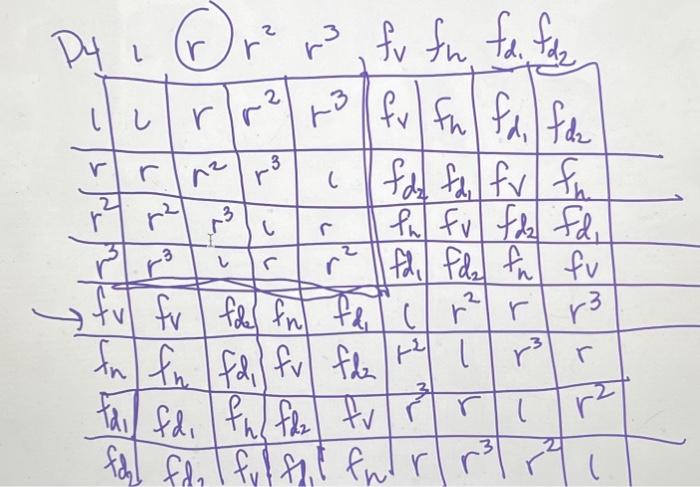 D4 ι r r² r³ fv fh fd₁ fd₂
ι ι r r² r³ fv fh fd₁ fd₂
r r r² r³ ι fd₂ fd₁ fv fh
r² r² r³ ι r fh fv fd₂ fd₁
r³ r³ ι r r² fd₁ fd₂ fh fv
→ fv fv fd₂ fh fd₁ ι r² r r³
fh fh fd₁ fv fd₂ r² ι r³ r
fd₁ fd₁ fh fd₂ fv r³ r ι r²
fd₂ fd₂ fv fd₁ fh r r³ r² ι